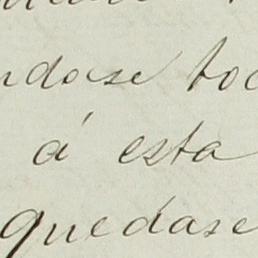 ndose toc
á esta
quedase